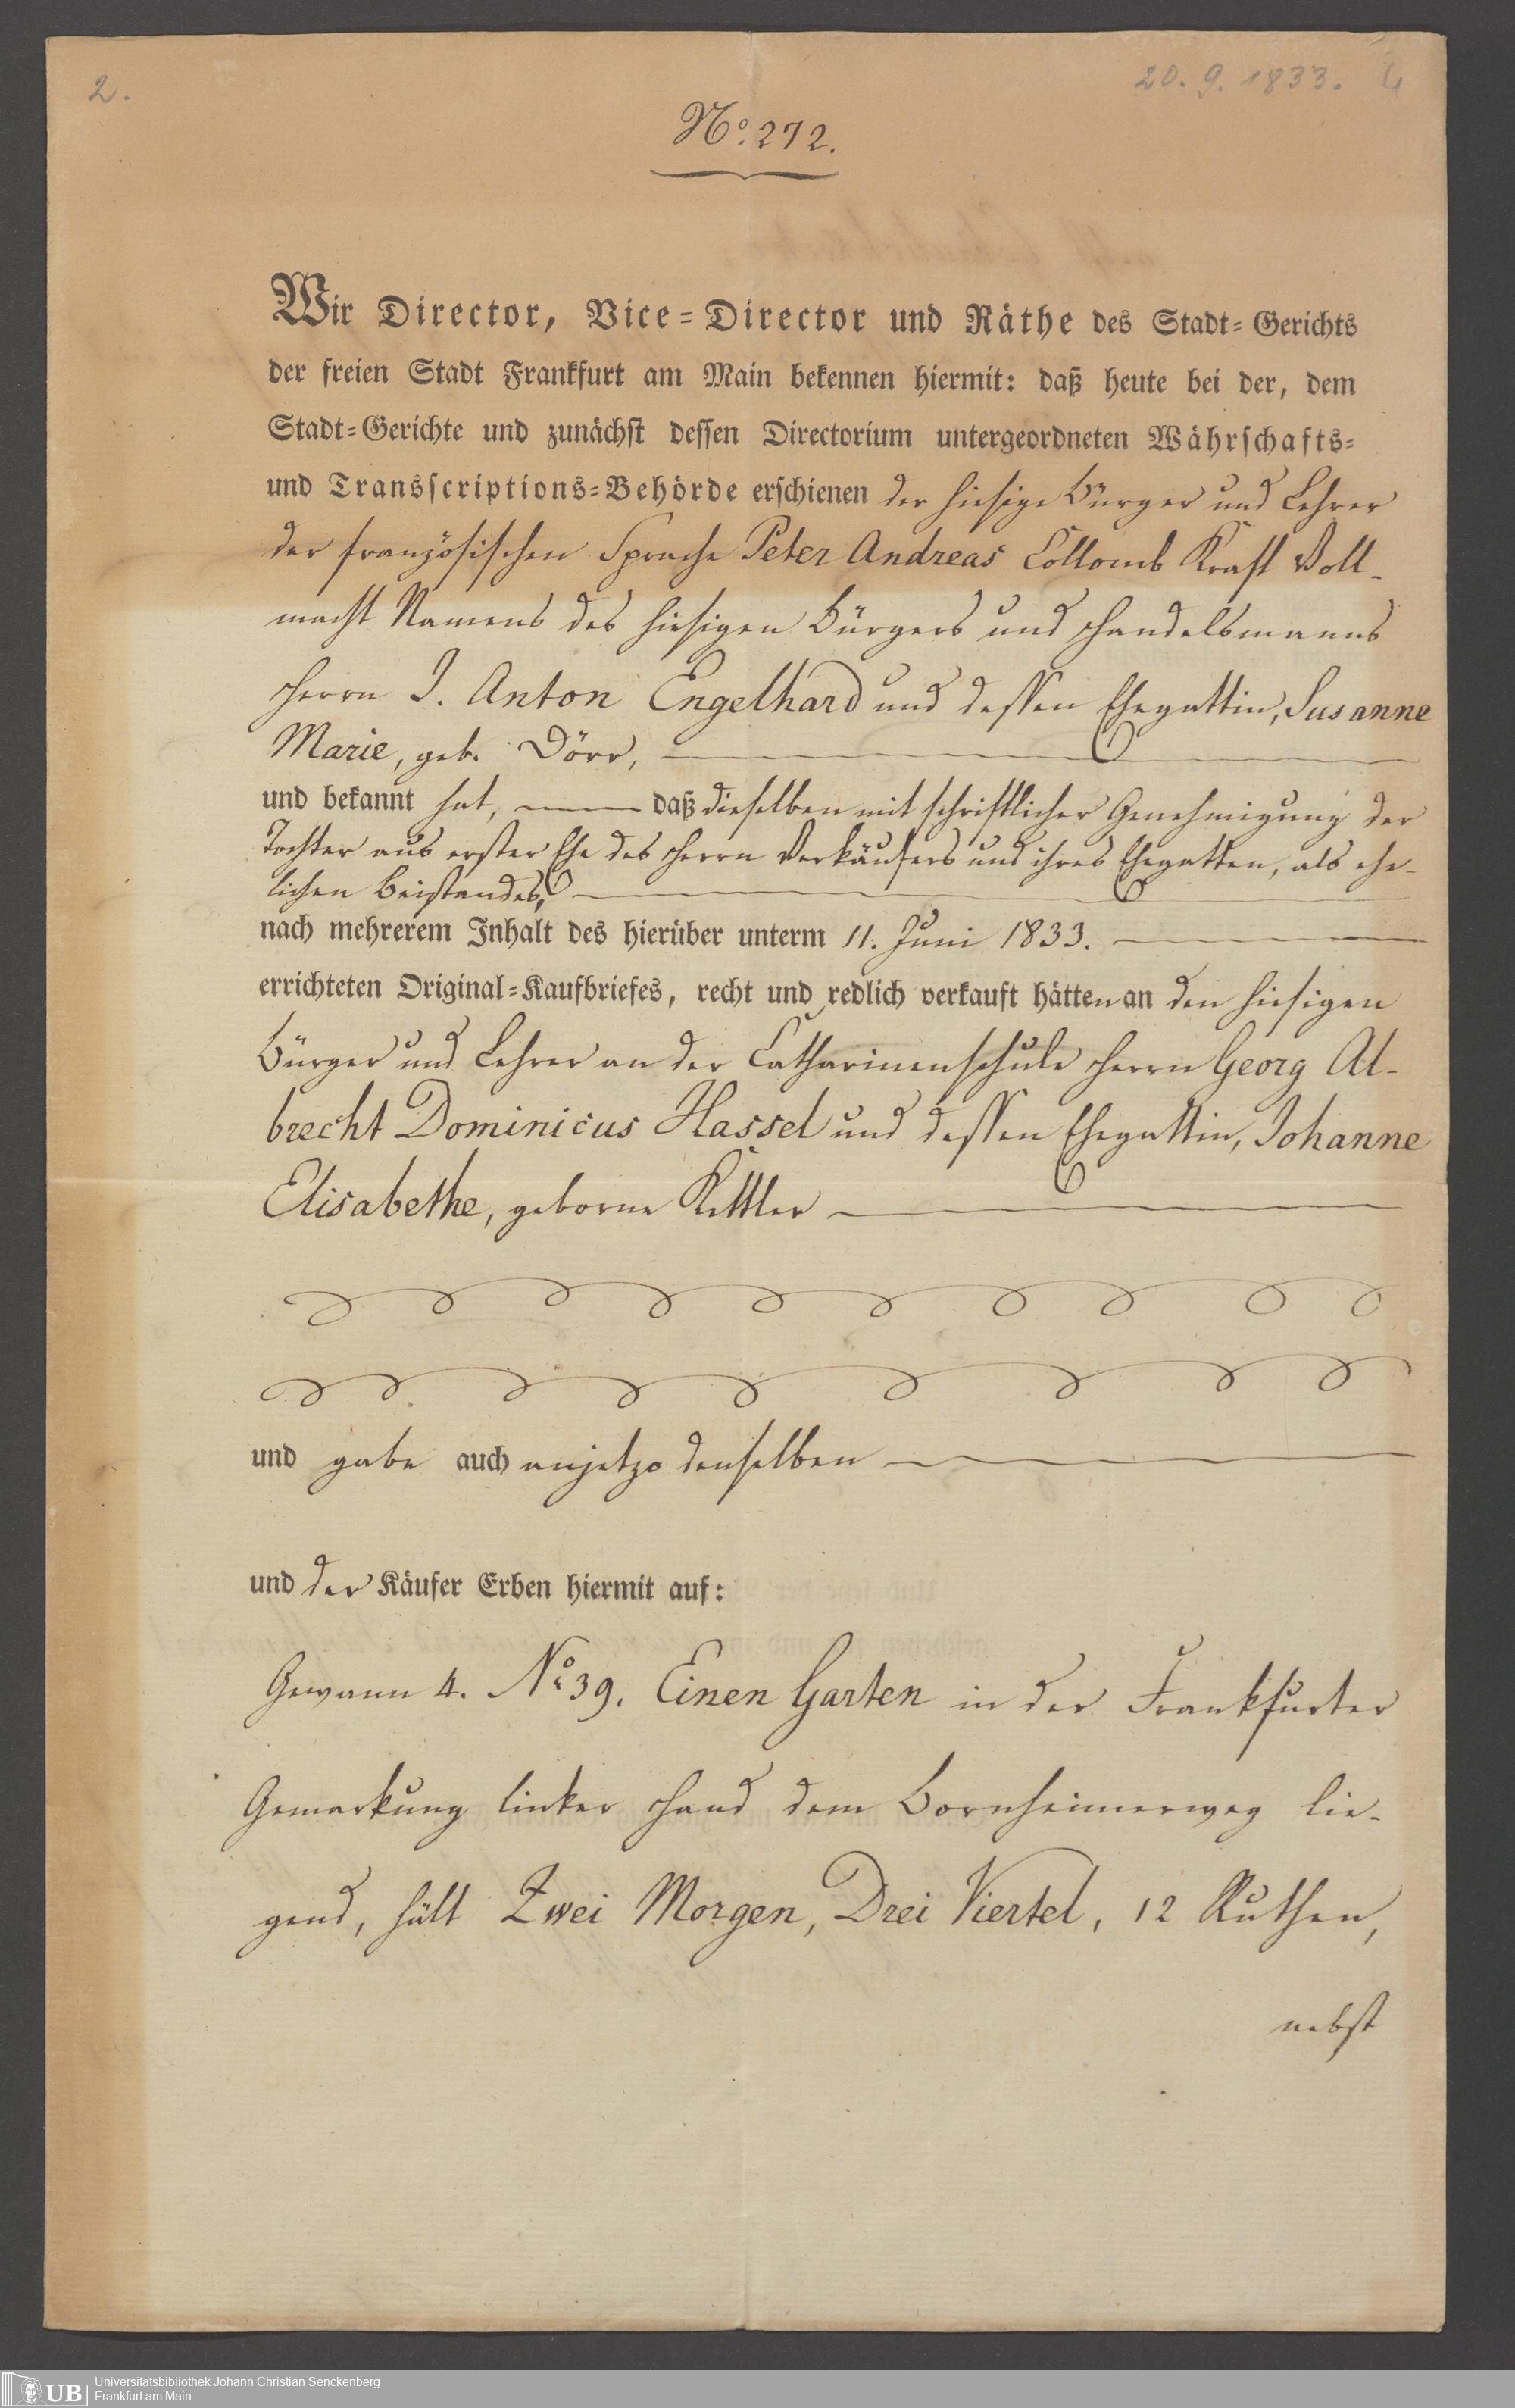 2.
20. 9. 1833.
No. 272.
Wir Director, Vice=Director und Räthe des Stadt=Gerichts
der freien Stadt Frankfurt am Main bekennen hiermit: daß heute bei der, dem
Stadt=Gerichte und zunächst dessen Directorium untergeordneten Währschafts=
und Transscriptions=Behörde erschienen der hiesige Bürger und Lehrer
der französischen Sprache Peter Andreas Collomb Kraft Voll-
macht Namens des hiesigen Bürgers und Handelsmanns
Herrn J. Anton Engelhard und dessen Ehegattin, Susanne
Marie, geb. Dörr,
und bekannt hat, daß dieselben mit schriftlicher Genehmigung der
Tochter aus erster Ehe des Herrn Verkäufers und ihres Ehegatten, als ehe-
lichen Beistandes,
nach mehrerem Inhalt des hierüber unterm 11. Juni 1833.
errichteten Original=Kaufbriefes, recht und redlich verkauft hätten an den hiesigen
Bürger und Lehrer an der Catharinenschule Herrn Georg Al-
brecht Dominicus Hassel und dessen Ehegattin, Johanne
Elisabethe, geborne Kettler
und gabe auch anjetzo denselben
und der Käufer Erben hiermit auf:
Gewann 4. No 39. Einen Garten in der Frankfurter
Gemarkung linker Hand dem Bornheimerweg lie-
gend, hält Zwei Morgen, Drei Viertel, 12 Ruthen,
nebst
UB
Universitätsbibliothek Johann Christian Senckenberg
Frankfurt am Main